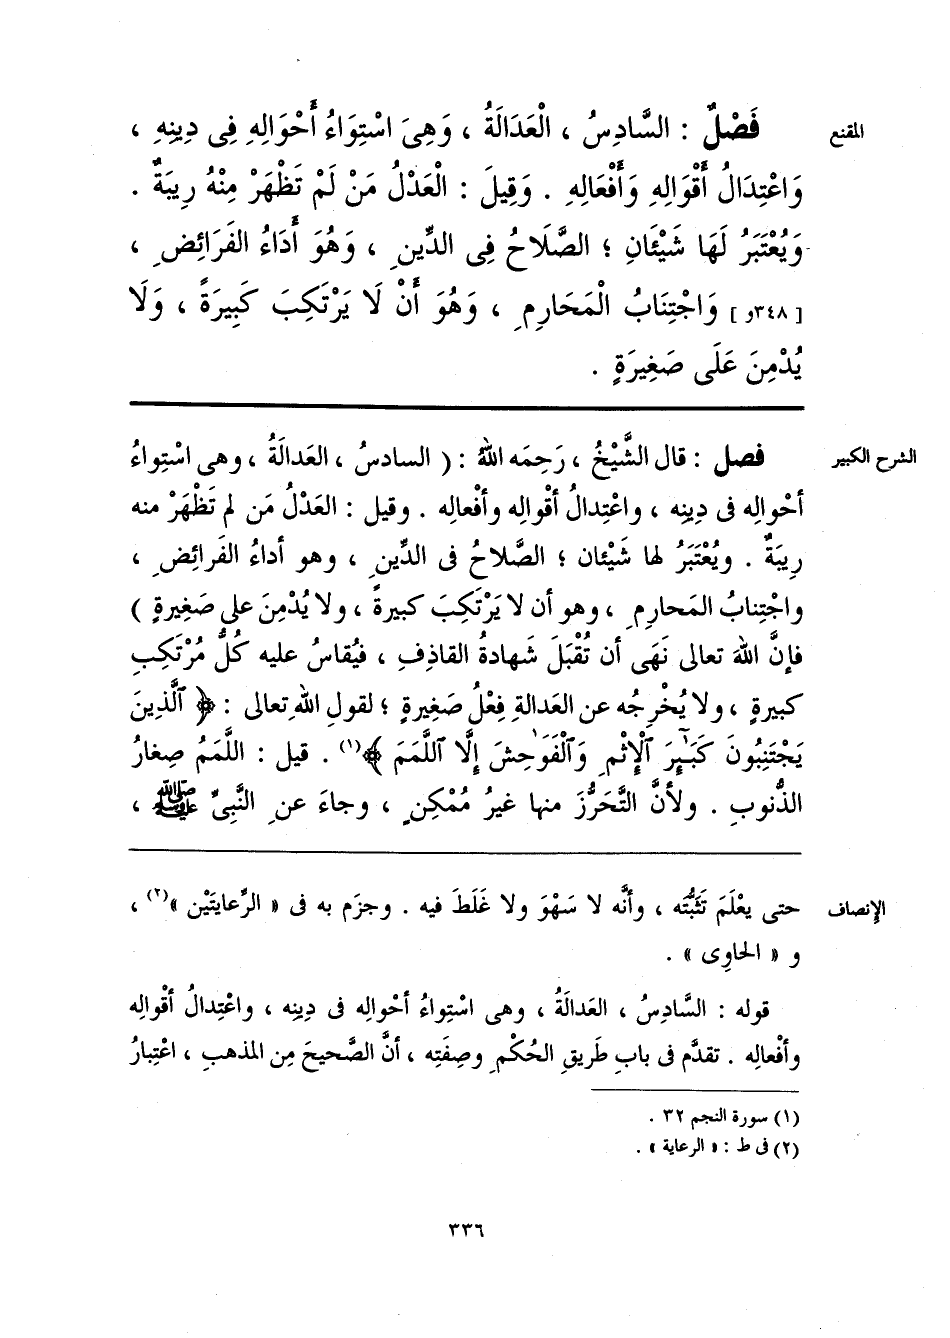 المقنع
فَصْلٌ : السَّادِسُ ، الْعَدَالَةُ ، وَهِىَ اسْتِوَاءُ أَحْوَالِهِ فِى دِينِهِ ،
وَاعْتِدَالُ أَقْوَالِهِ وَأَفْعَالِهِ . وَقِيلَ : الْعَدْلُ مَنْ لَمْ تَظْهَرْ مِنْهُ رِيبَةٌ .
وَيُعْتَبَرُ لَهَا شَيْئَانِ ؛ الصَّلَاحُ فِى الدِّينِ ، وَهُوَ أَدَاءُ الفَرَائِضِ ،
[ ٣٤٨و ] وَاجْتِنَابُ الْمَحَارِمِ ، وَهُوَ أَنْ لَا يَرْتَكِبَ كَبِيرَةً ، وَلَا
يُدْمِنَ عَلَى صَغِيرَةٍ .
الشرح الكبير
فصل : قال الشَّيْخُ ، رَحِمَه اللهُ : ( السادسُ ، العَدالَةُ ، وهى اسْتِواءُ
أحْوالِه فى دِينِه ، واعْتِدالُ أقْوالِه وأفْعالِه . وقيل : العَدْلُ مَن لم تَظْهَرْ منه
رِيبَةٌ . ويُعْتَبَرُ لها شَيْئان ؛ الصَّلاحُ فى الدِّينِ ، وهو أداءُ الفَرائِضِ ،
واجْتِنابُ المَحارِمِ ، وهو أن لا يَرْتَكِبَ كبيرةً ، ولا يُدْمِنَ على صَغِيرةٍ )
فإنَّ اللهَ تعالى نَهَى أن تُقْبَلَ شَهادةُ القاذِفِ ، فيُقاسُ عليه كلُّ مُرْتَكِبِ
كبيرةٍ ، ولا يُخْرِجُه عن العَدالةِ فِعْلُ صَغِيرةٍ ؛ لقولِ اللهِ تعالى : ﴿ ٱلَّذِينَ
يَجْتَنِبُونَ كَبَٰٓئِرَ ٱلْإِثْمِ وَٱلْفَوَٰحِشَ إِلَّا ٱللَّمَمَ ﴾(١) . قيل : اللَّمَمُ صِغارُ
الذُّنوبِ . ولأنَّ التَّحَرُّزَ منها غيرُ مُمْكِنٍ ، وجاءَ عنِ النَّبِىِّ ﷺ ،
الإنصاف
حتى يعْلَمَ تَثَبُّتَه ، وأنَّه لا سَهْوَ ولا غَلَطَ فيه . وجزَم به فى « الرِّعايتَيْن »(٢) ،
و « الحاوِى » .
قوله : السَّادِسُ ، العَدالَةُ ، وهى اسْتِواءُ أحْوالِه فى دِينِه ، واعْتِدالُ أقْوالِه
وأفْعالِه . تقدَّم فى بابِ طَريقِ الحُكْمِ وصِفَتِه ، أنَّ الصَّحيحَ مِن المذهبِ ، اعْتِبارُ
(١) سورة النجم ٣٢ .
(٢) فى ط : « الرعاية » .
٣٣٦